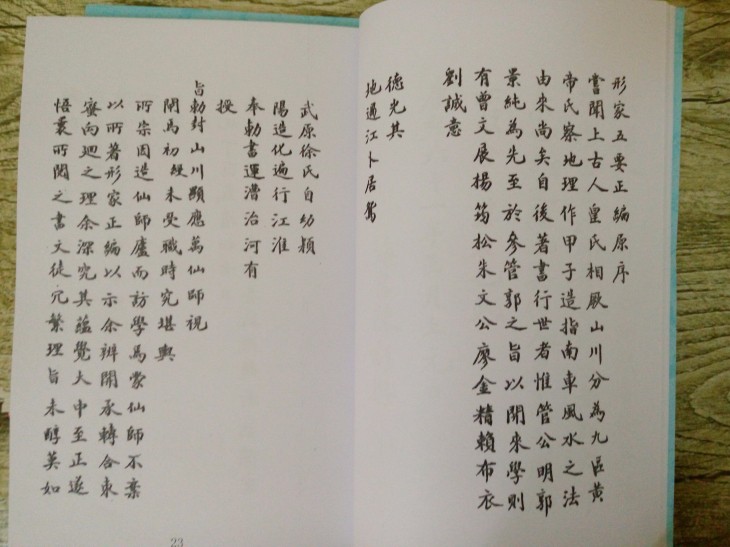 形家五要正編原序
嘗聞上古人皇氏相厥山川分為九區黃
帝氏察地理作甲子造指南車風水之法
由來尚矣自後著書行世者惟管公明郭
景純為先至於參管郭之旨以開來學則
有曾文展楊筠松朱文公廖金精賴布衣
劉誠意
德光其
地過江卜居鴛
武原徐氏自幼穎
陽造化遍行江淮
奉勅書運漕治河有
授
旨勅封山川顯應萬仙師視
閘馬初經未受職時究堪輿
所宗因造仙師廬而訪學焉蒙仙師不棄
以所著形家正編以示余辨開承轉合東
蜜向迴之理余深究其蘊覺大中至正遂
悟曩所閱之書文徒冗繁理旨未醇莫如
23